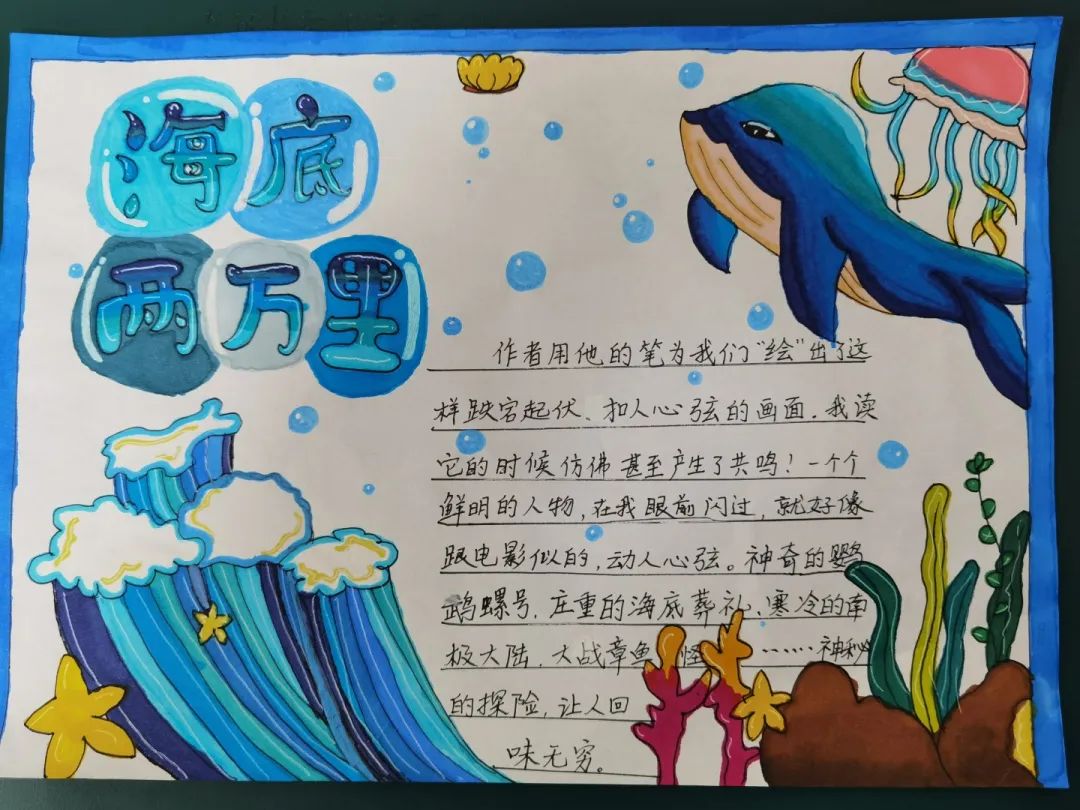 海底
两万里
作者用他的笔为我们“绘”出了这
样跌宕起伏、扣人心弦的画面.我读
它的时候仿佛甚至产生了共鸣！一个个
鲜明的人物,在我眼前闪过,就好像
跟电影似的,动人心弦。神奇的鹦
鹉螺号.庄重的海底葬礼、寒冷的南
极大陆.大战章鱼 怪 ……神秘
的探险,让人回
味无穷。